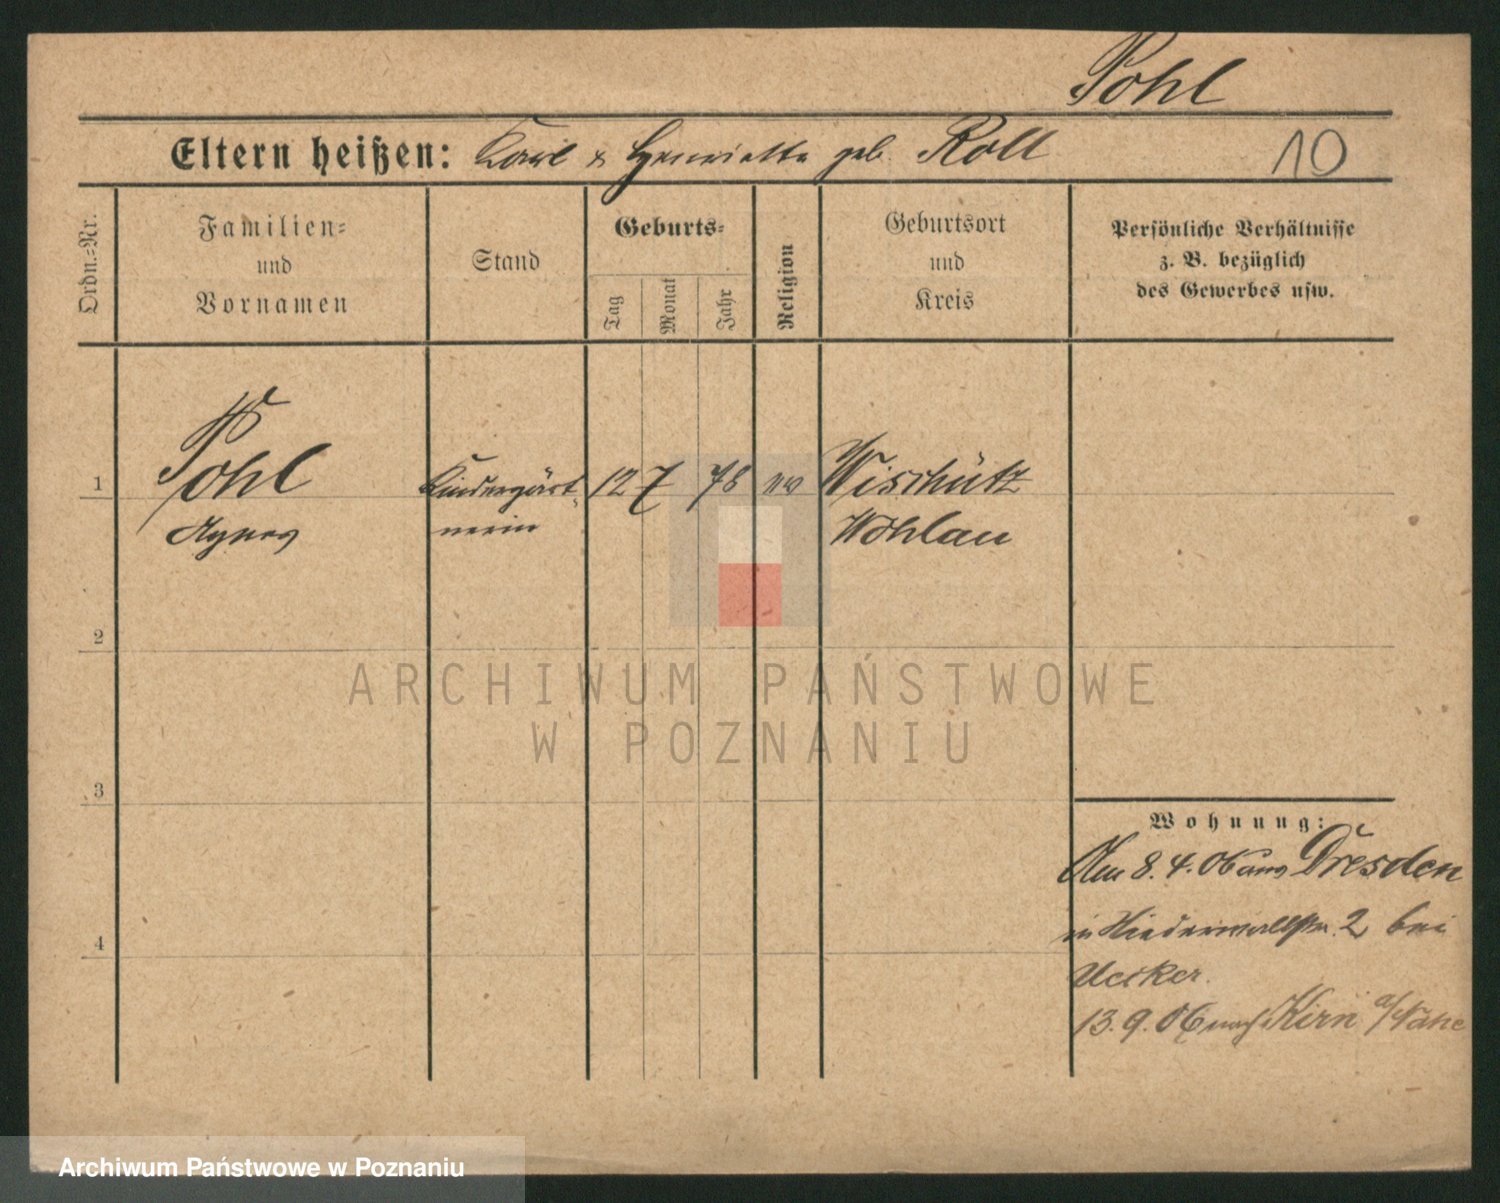 Pohl
Eltern heißen: Karl & Henriette geb. Roll
10
Ordn.-Nr.
Familien-
und
Vornamen
Stand
Geburts-
Tag
Monat
Jahr
Religion
Geburtsort
und
Kreis
Persönliche Verhältnisse
z. B. bezüglich
des Gewerbes usw.
1
Pohl
Agnes
Kindergärt-
nerin
12
7
78
ev
Wischütz
Wohlau
2
ARCHIWUM PAŃSTWOWE
W POZNANIU
3
Wohnung:
Am 8. 4. 06 aus Dresden
in Niederwallstr. 2 bei
Uecker.
13. 9. 06 nach Kirn a/Nahe
4
Archiwum Państwowe w Poznaniu